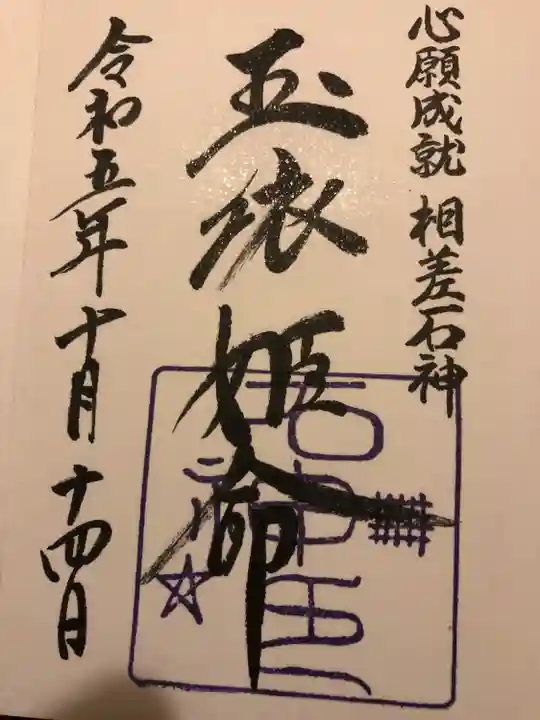 心願成就 相差石神
玉依姫命
令和五年十月十四日
石神